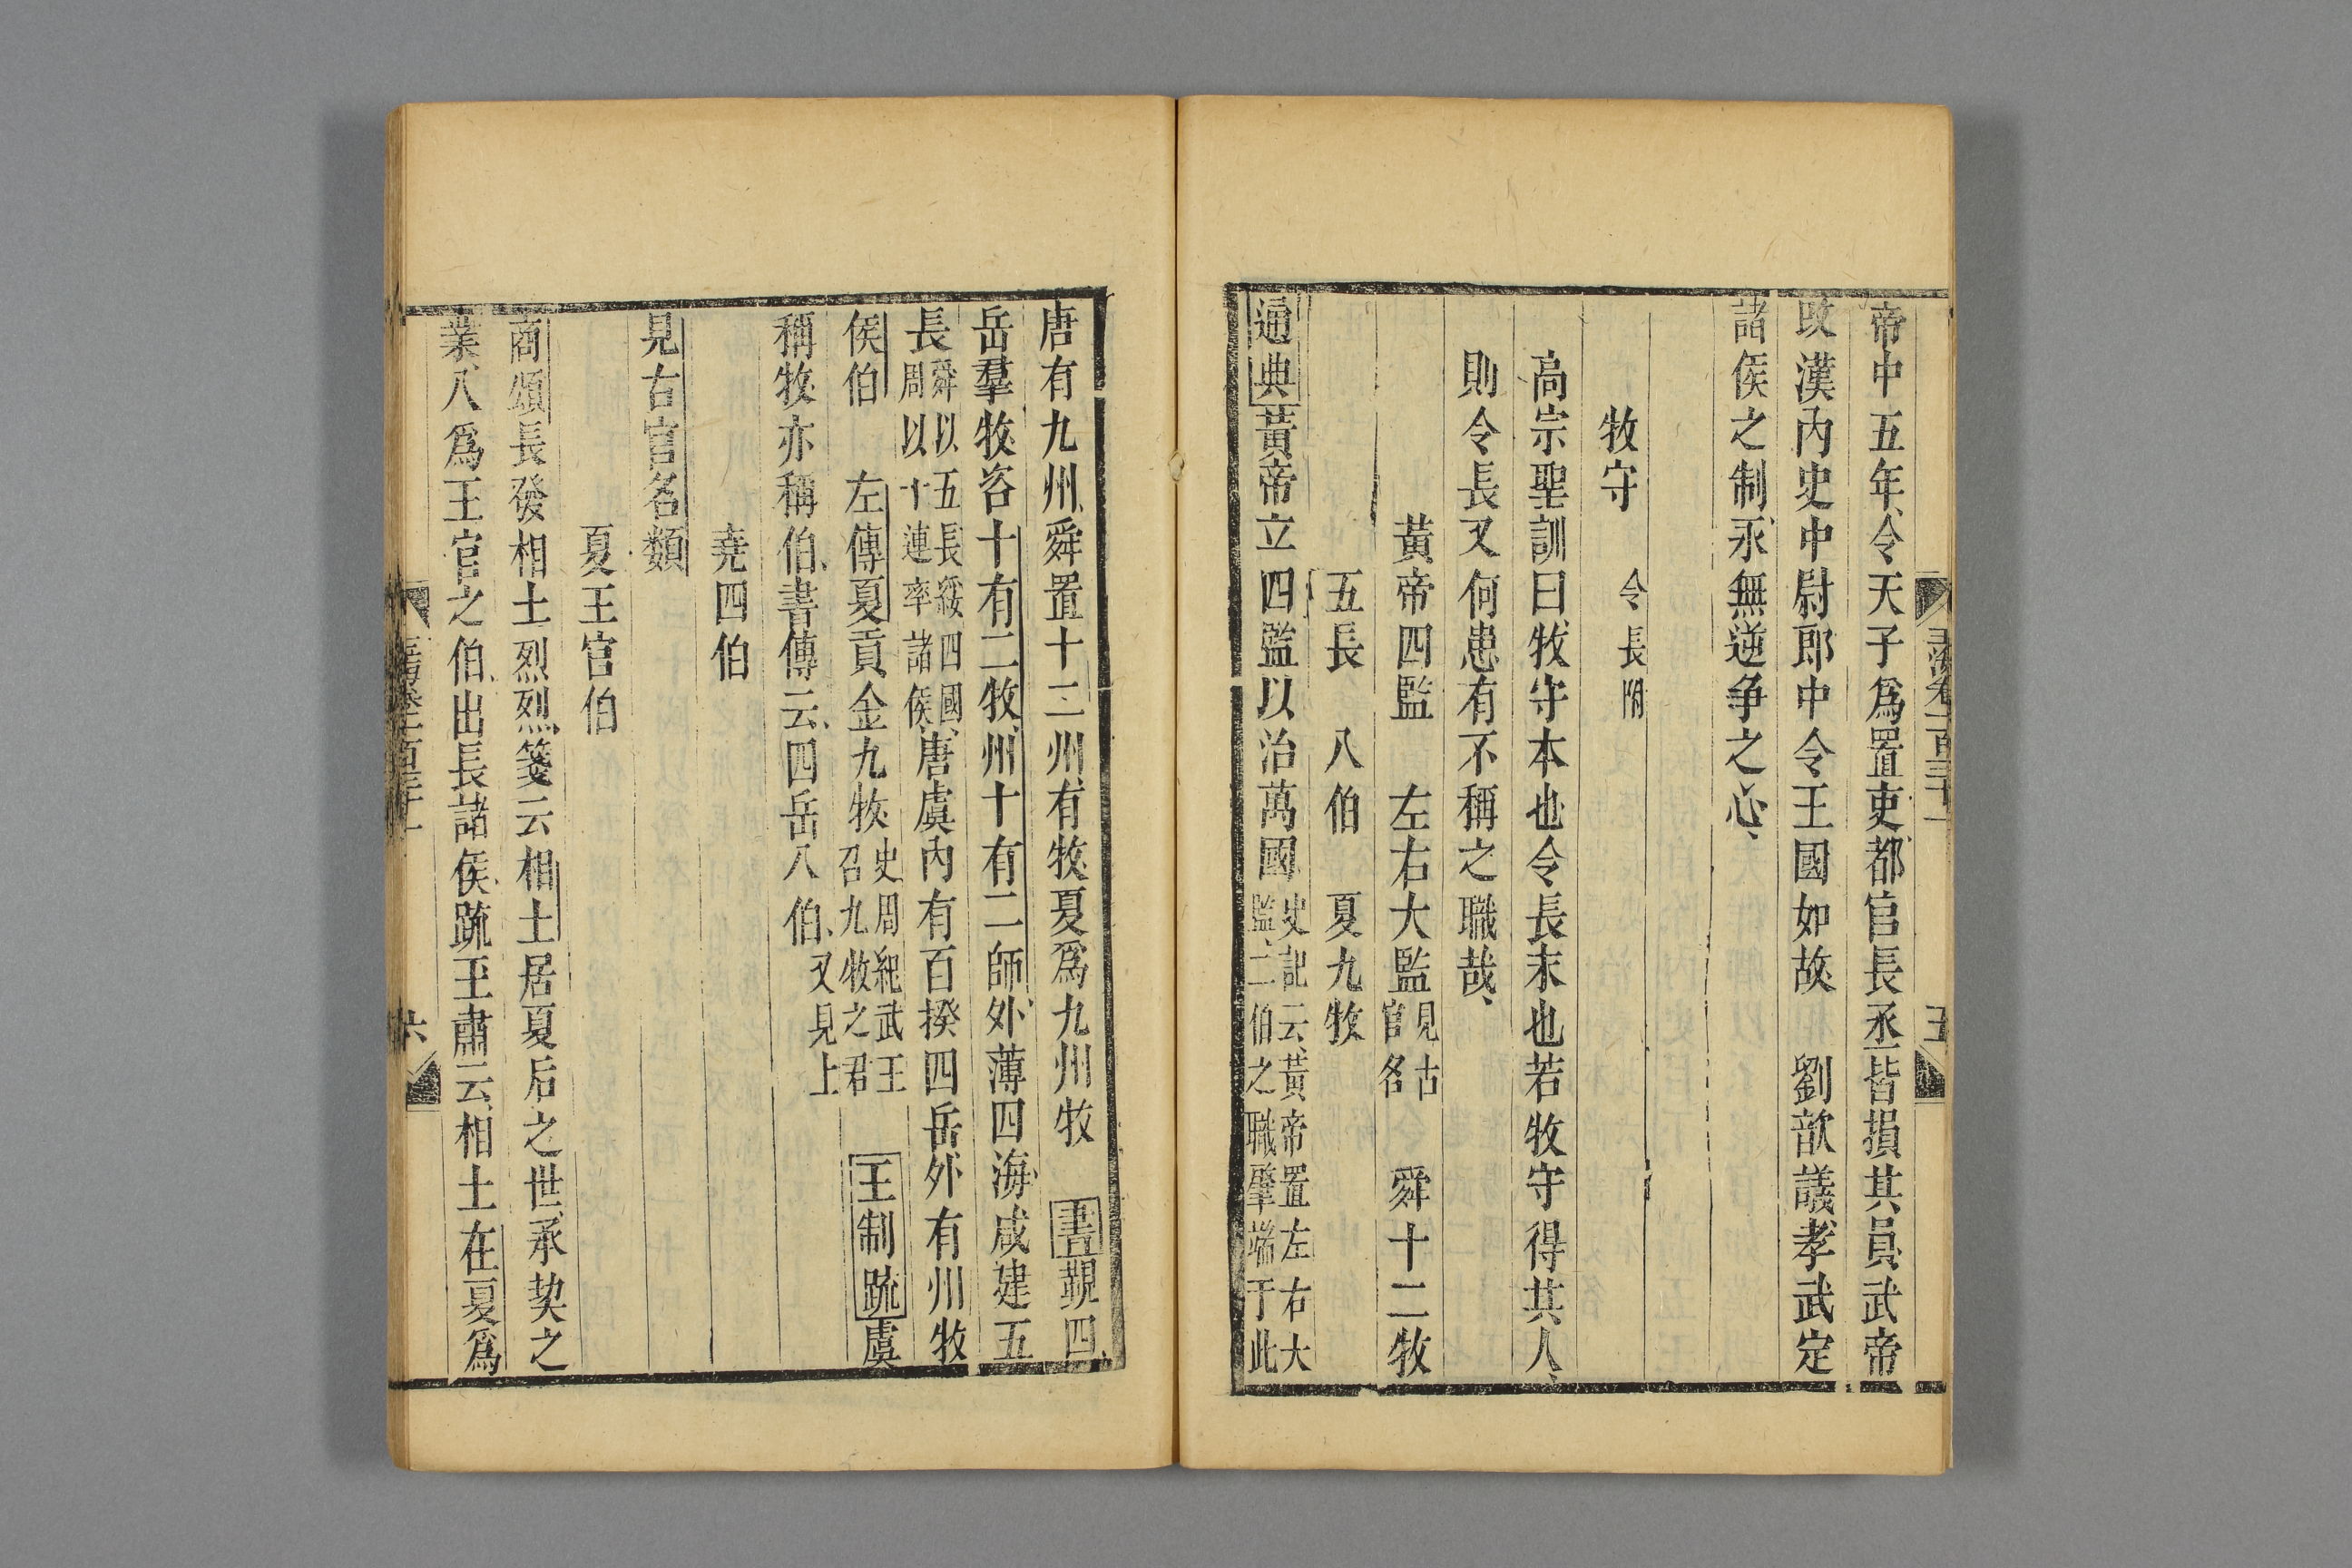 帝中五年令天子爲置吏都官長丞皆損其員武帝
改漢內史中尉郎中令王國如故　劉歆議孝武定
諸侯之制永無逆争之心
牧守　令長附
高宗聖訓曰牧守本也令長末也若牧守得其人
則令長又何患有不稱之職哉
黃帝四監　左右大監見古官名　舜十二牧
五長　八伯　夏九牧
通典黃帝立四監以治萬國史記云黃帝置左右大監二伯之職肇端于此
唐有九州舜置十二州有牧夏爲九州牧　書覲四
岳羣牧咨十有二牧州十有二師外薄四海咸建五
長舜以五長綏四國周以十連率諸侯唐虞內有百揆四岳外有州牧
侯伯　左傳夏貢金九牧史周紀武王召九牧之君　王制疏虞
稱牧亦稱伯書傳云四岳八伯又見上
堯四伯
見古官名類
夏王官伯
商頌長發相土烈烈箋云相土居夏后之世承契之
業入爲王官之伯出長諸侯疏王肅云相土在夏爲
六